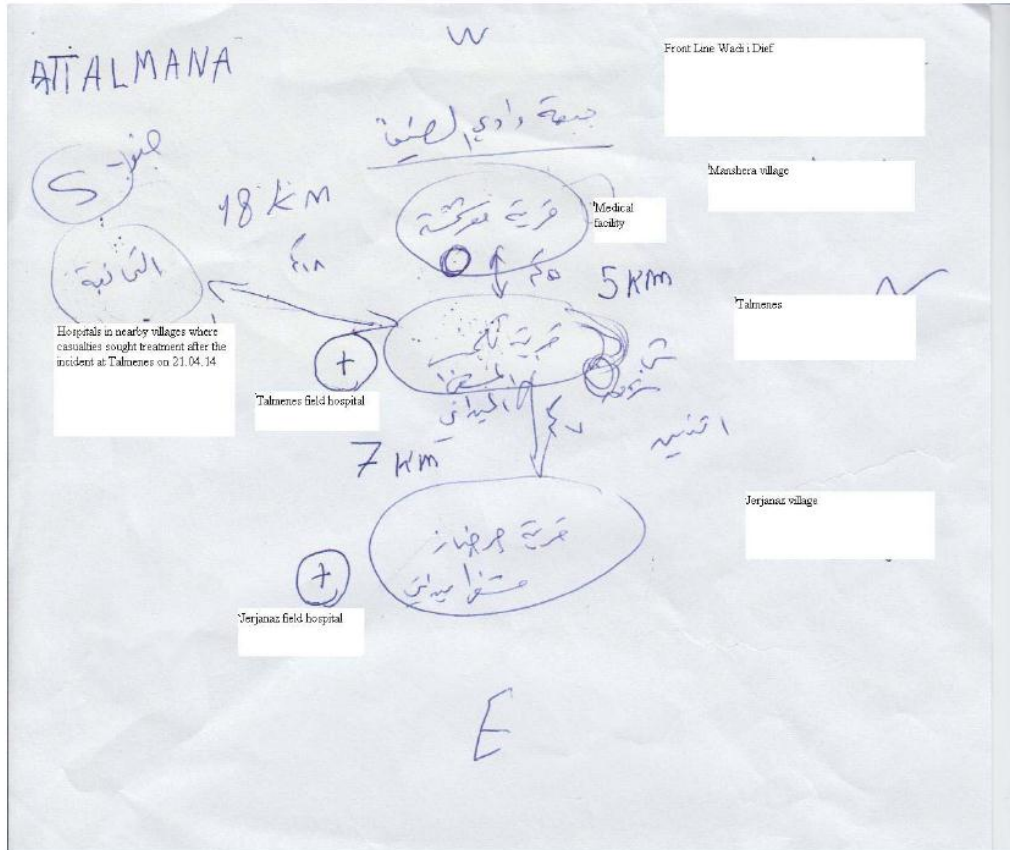 W
ATTALMANA
Front Line Wadi i Dief
جبهة وادي الضيف
جنوب
S
Manshera village
18 km
قرية
Medical facility
٥ كم
5 KM
Talmenes
N
١٨ كم
Hospitals in nearby villages where
casualties sought treatment after the
incident at Talmenes on 21.04.14
+
قرية تلمنس
المشفى
الميداني
Talmenes field hospital
٧ كم
7 KM
Jerjanaz village
قرية جرجناز
مشفى ميداني
+
Jerjanaz field hospital
E